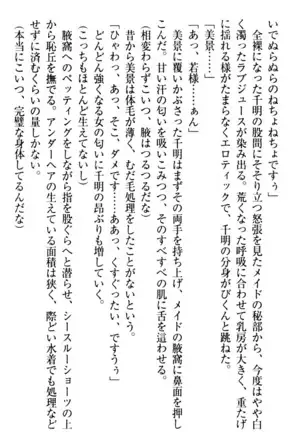 いでぬらぬらのねちょねちょですぅ」
全裸になった千明の股間にそそり立つ怒張を見たメイドの秘部から、今度はやや白
く濁ったラブジュースが染み出る。荒くなった呼吸に合わせて乳房が大きく、重たげ
に揺れる様がたまらなくエロティックで、千明の分身がびくんと跳ねた。
「美景……」
「あっ、若様……ぁん」
美景に覆いかぶさった千明はまずその両手を持ち上げ、メイドの腋窩に鼻面を押し
こんだ。甘い汗の匂いを吸いこみつつ、そのすべすべの肌に舌を這わせる。
(相変わらずこいつ、腋はつるつるだな)
昔から美景は体毛が薄く、むだ毛処理をしたことがないという。
「ひゃわっ、あっ、そこ、ダメです……ああっ、くすぐったい、ですうぅ」
どんどん強くなる女の匂いに千明の昂ぶりも増していく。
(こっちもほとんど生えてないし)
腋窩へのペッティングをしながら指を股ぐらへと潜らせ、シースルーショーツの上
から恥丘を撫でる。アンダーヘアの生えている面積は狭く、際どい水着でも処理など
せずに済むくらいの量しかない。
(本当にこいつ、完璧な身体してるんだな)